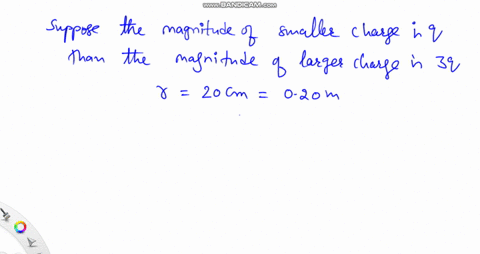 WWW.BANDICAM.COM
Suppose the magnitude of smaller charge is q
Than the magnitude of larger charge is 3q
r = 20 Cm = 0.20 m